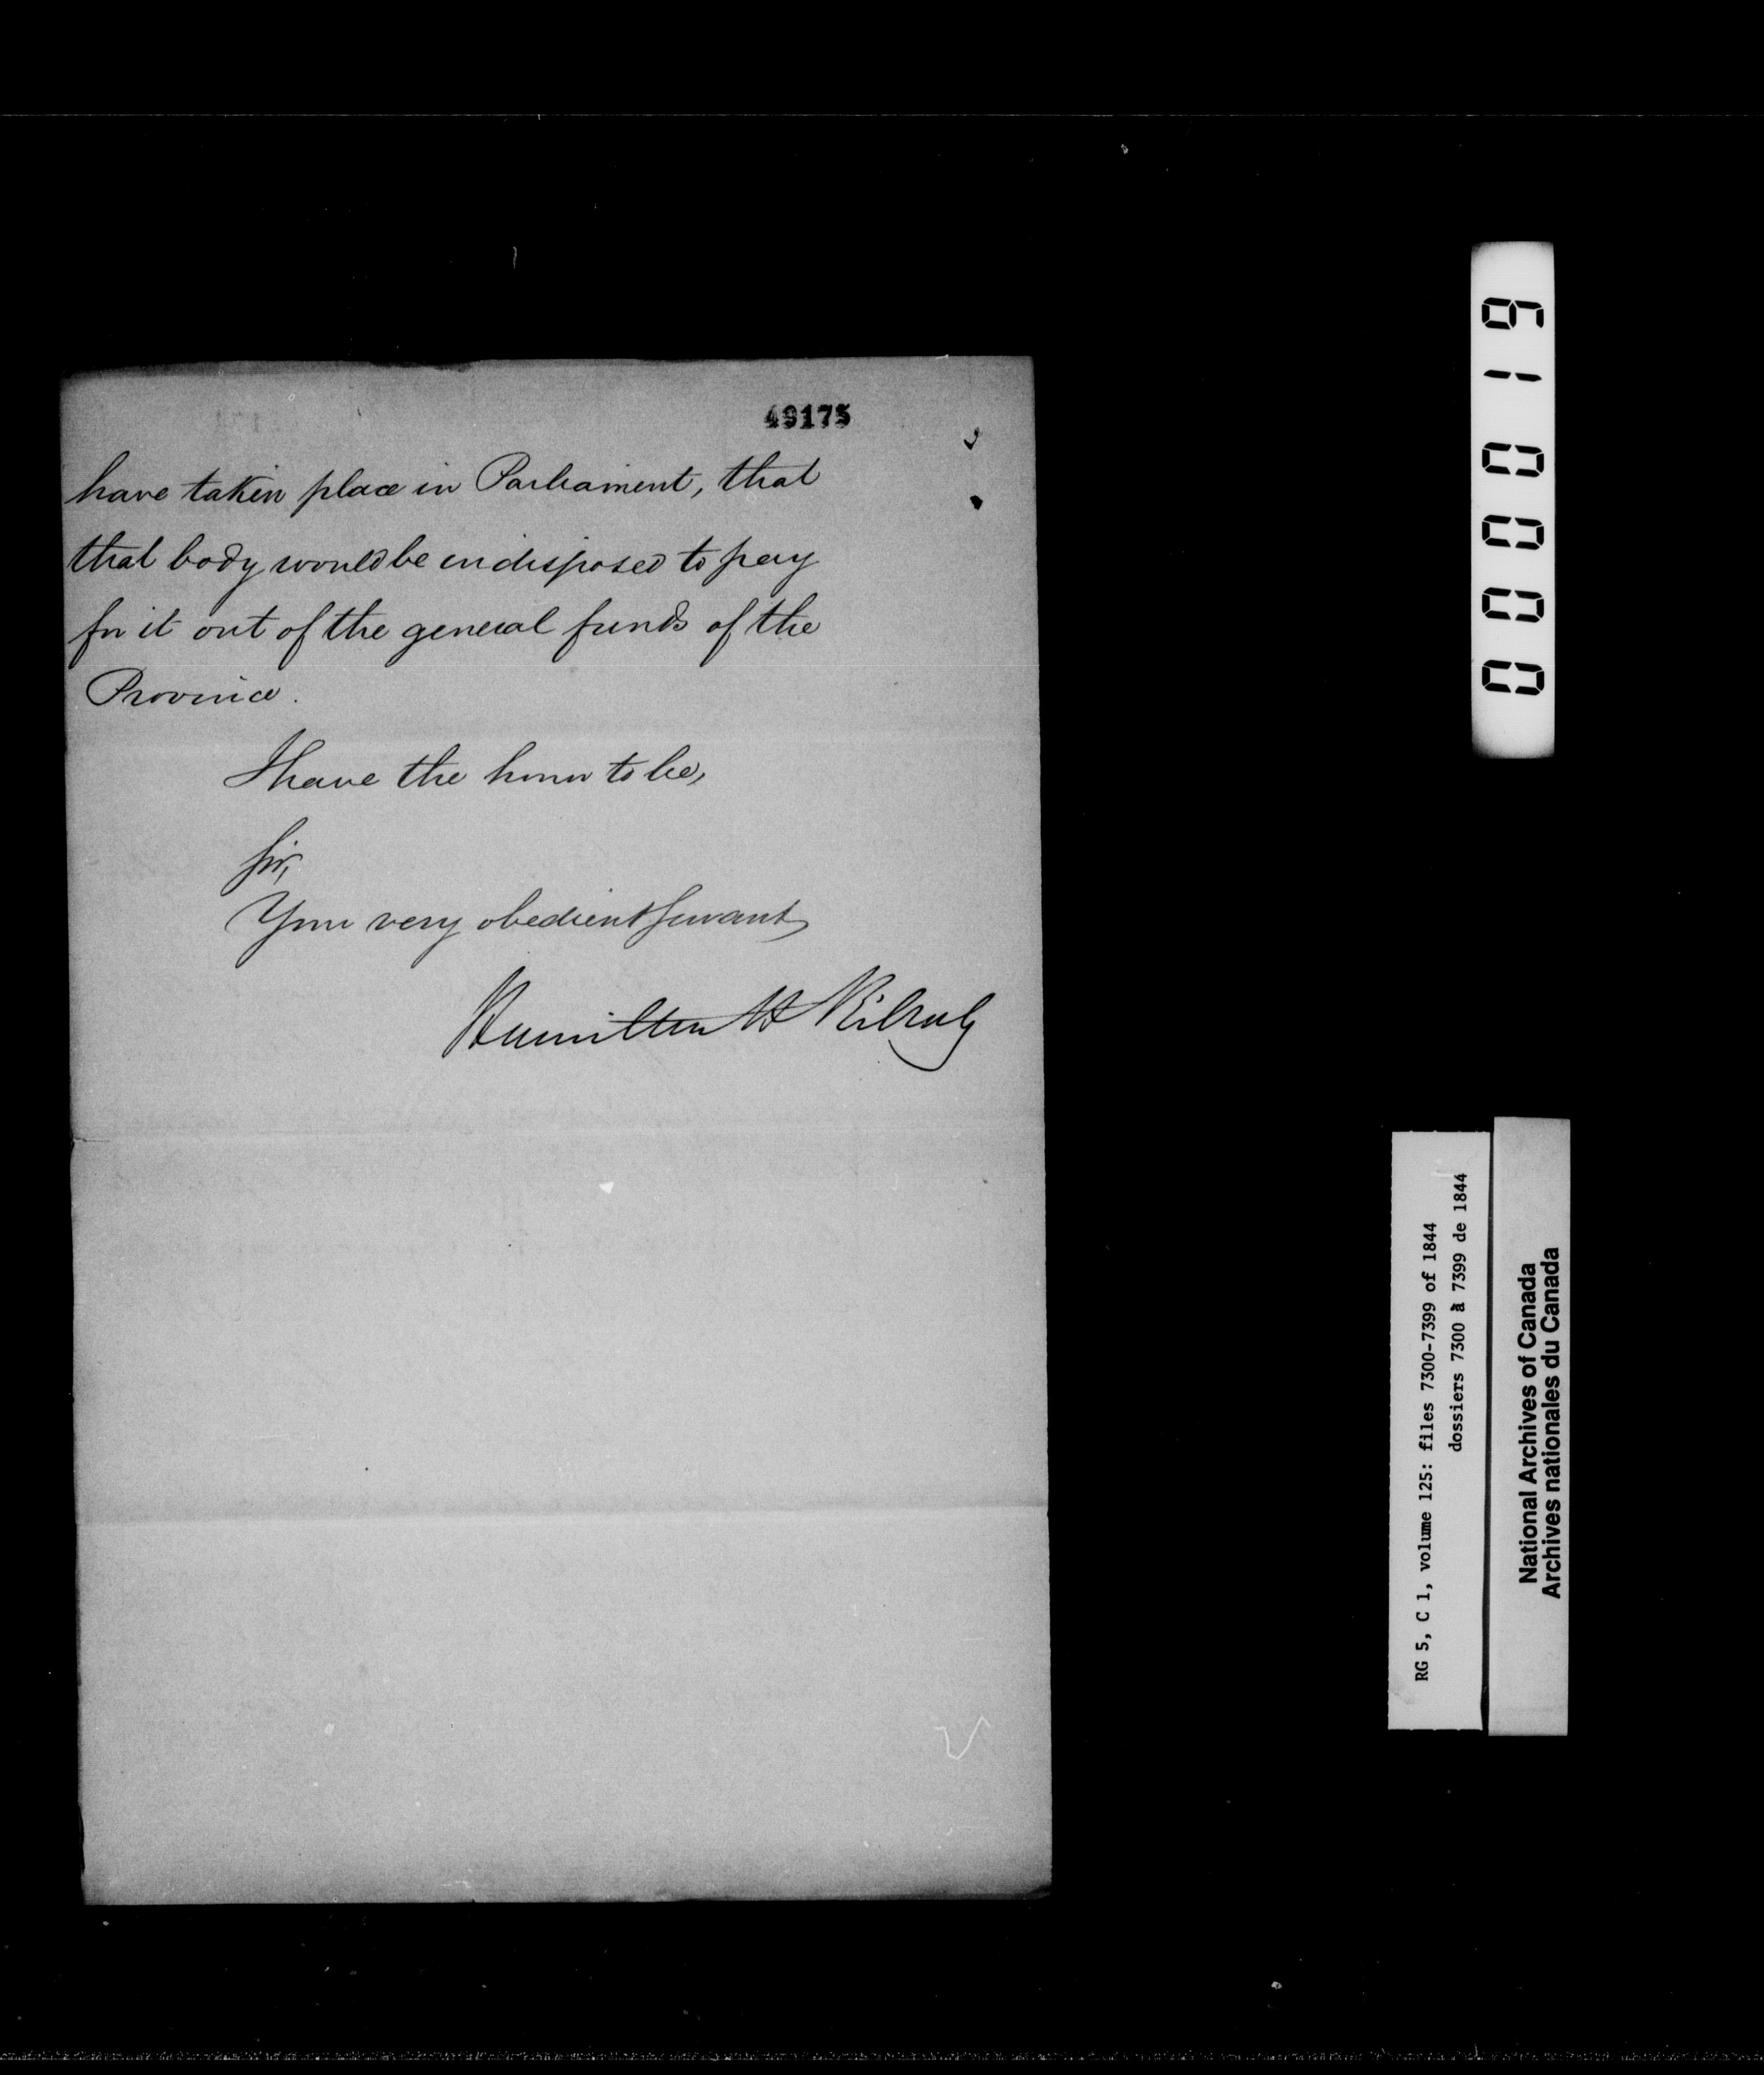 49175
have taken place in Parliament, that
that body would be indisposed to pay
for it out of the general funds of the
Province.
I have the honor to be,
Sir,
Your very obedient Servant
Hamilton H Killaly
000019
RG 5, C 1, volume 125: files 7300-7399 of 1844
dossiers 7300 à 7399 de 1844
National Archives of Canada
Archives nationales du Canada